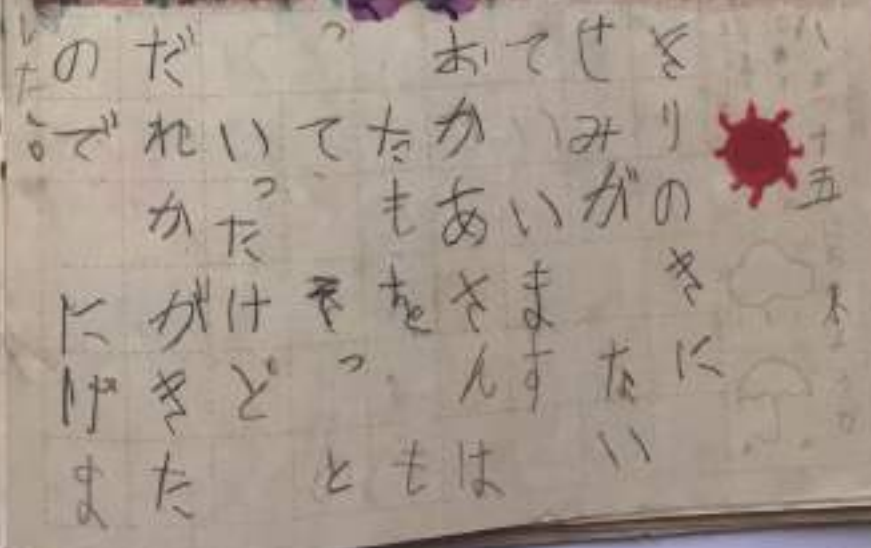 八十五木
きりのきに
せみがない
ています
おかあさんは
たもをも
ってそっと
いったけど
だれかがきた
のでにげま
した。